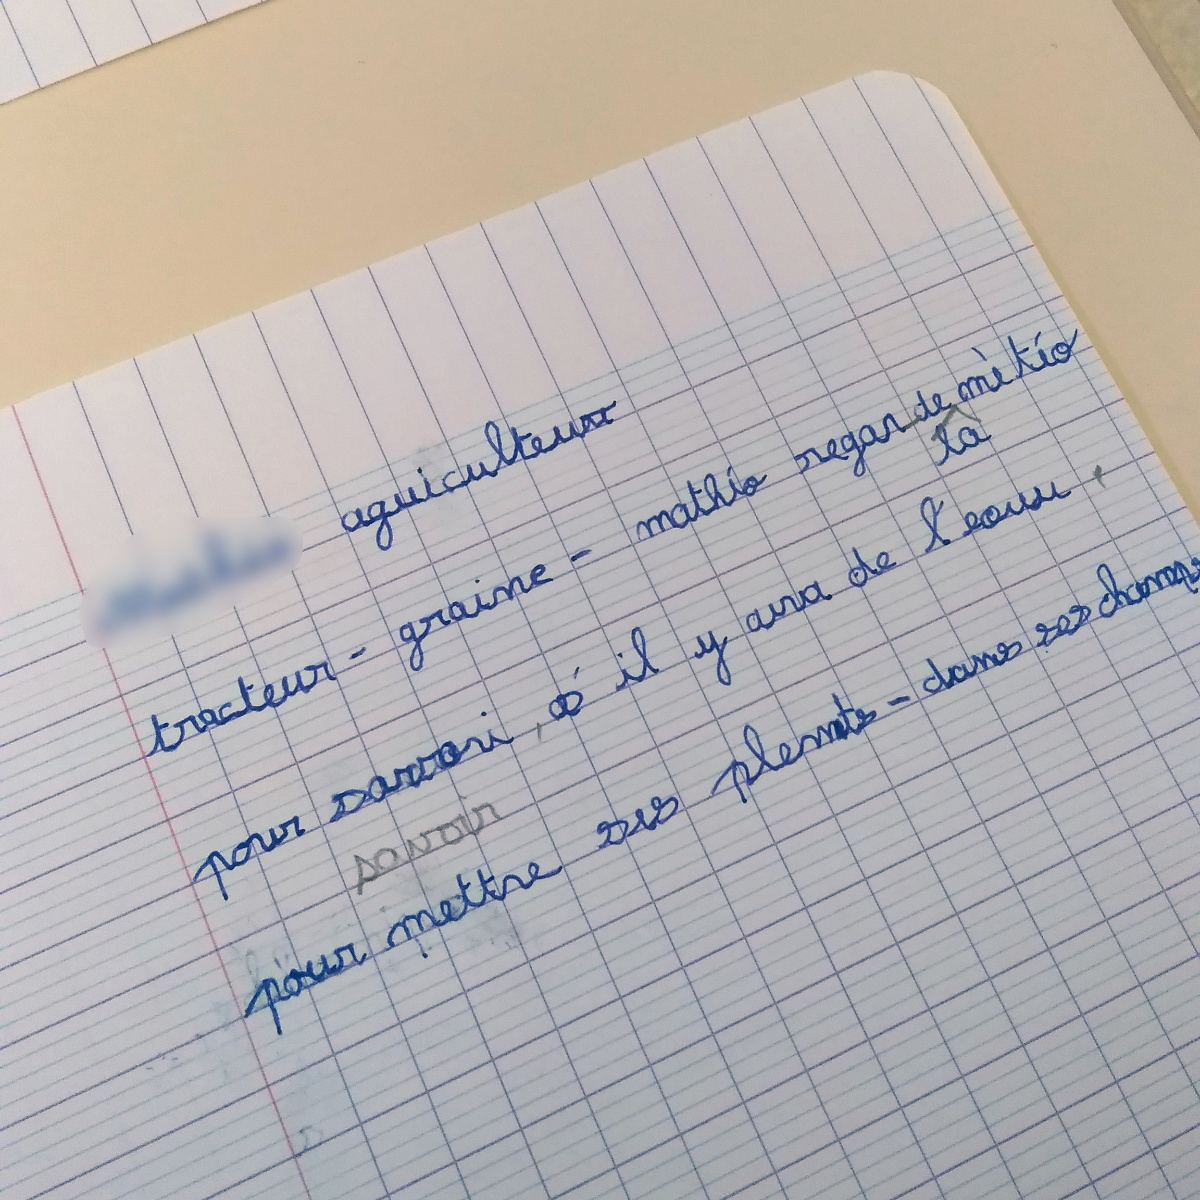 aguiculteur
tracteur - graine - mathéo regarde mètéo
la
pour savori, ó il y aura de l'eaux.
savoir
pour mettre ses plemts - dans ses champs